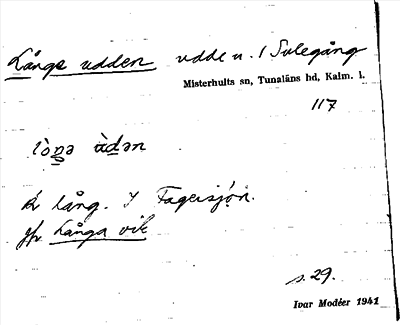 Långa udden udde n. i Sulegång
Misterhults sn, Tunaläns hd, Kalm. l.
117
lòŋə ùdən
Är lång. I Fagersjön.
jfr Långa vik
s. 29.
Ivar Modéer 1941